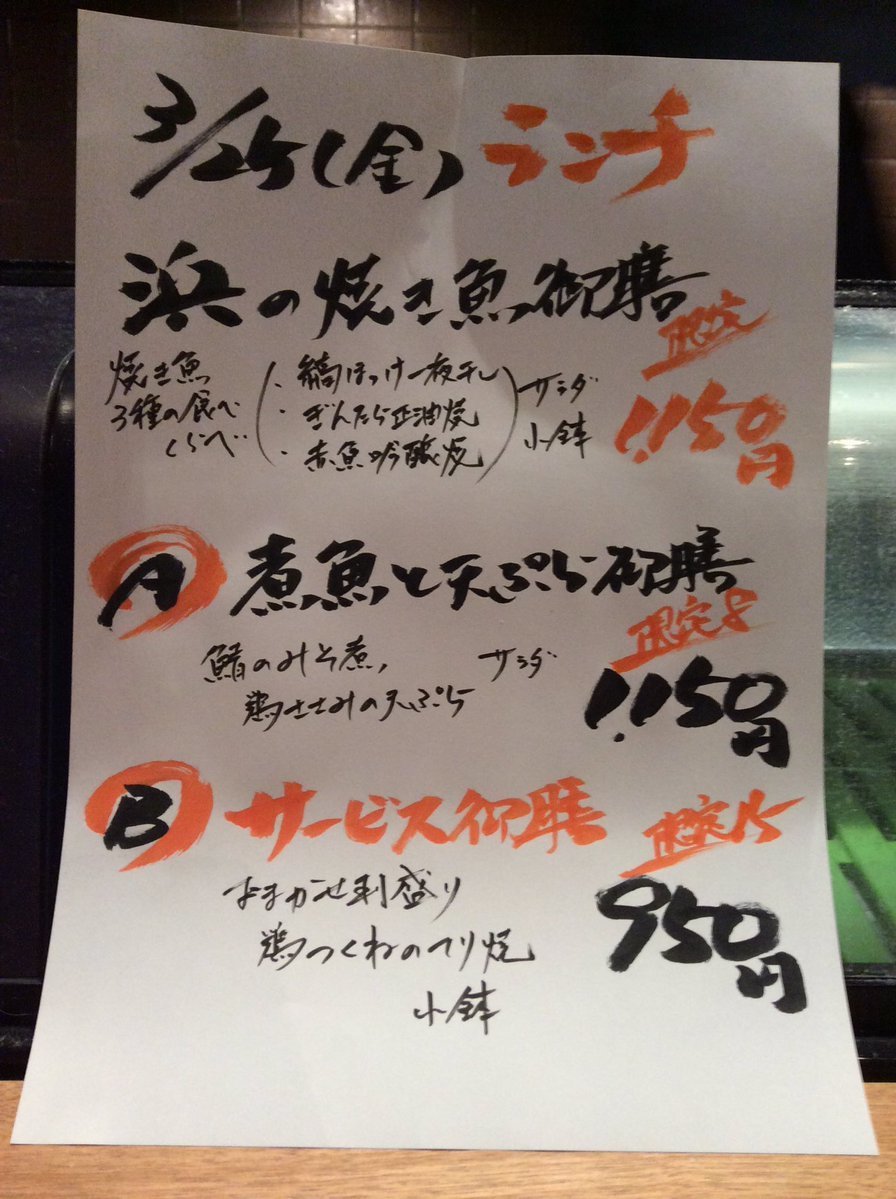 3/25(金) ランチ
浜の焼き魚御膳
限定
焼き魚
3種の食べ
くらべ
・縞ほっけ一夜干し
・ぎんだら正油焼
・赤魚吟醸焼
サラダ
小鉢
1,150円
A 煮魚と天ぷら御膳
限定8
鯖のみそ煮、 サラダ
鶏ささみの天ぷら
1,150円
B サービス御膳 限定15
おまかせ刺盛り
鶏つくねのてり焼
小鉢
950円